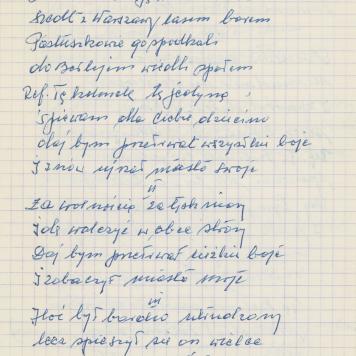 szedł z Warszawy lasem borem
Pastuszkowie go spotkali
do Betlejem wiedli społem
Ref. Tę kolendę tę jedyną
śpiewam dla Ciebie dziecino
daj bym przetrwał wszystkie boje
I znów ujrzał miasto swoje
II
Za wolność za
Idę walczyć w obce strony
Daj bym przetrwał ciężkie boje
I zobaczył miasto moje
III
Ktoś był bardzo utrudzony
lecz spieszył się on wielce